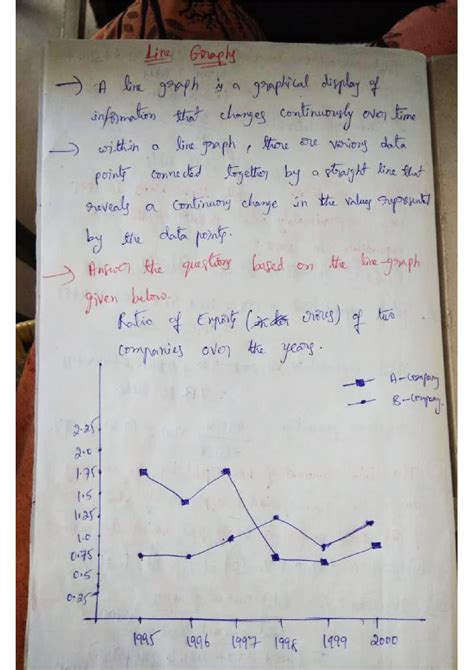 Line Graphs
→ A line graph is a graphical display of
information that changes continuously over time
→ within a line graph, there are various data
points connected together by a straight line that
reveals a continuous change in the values represented
by the data points.
→ Answer the questions based on the line-graph
given below.
Ratio of Exports (in crores) of two
companies over the years.
A-Company
B-Company
2.25
2.0
1.75
1.5
1.25
1.0
0.75
0.5
0.25
1995 1996 1997 1998 1999 2000